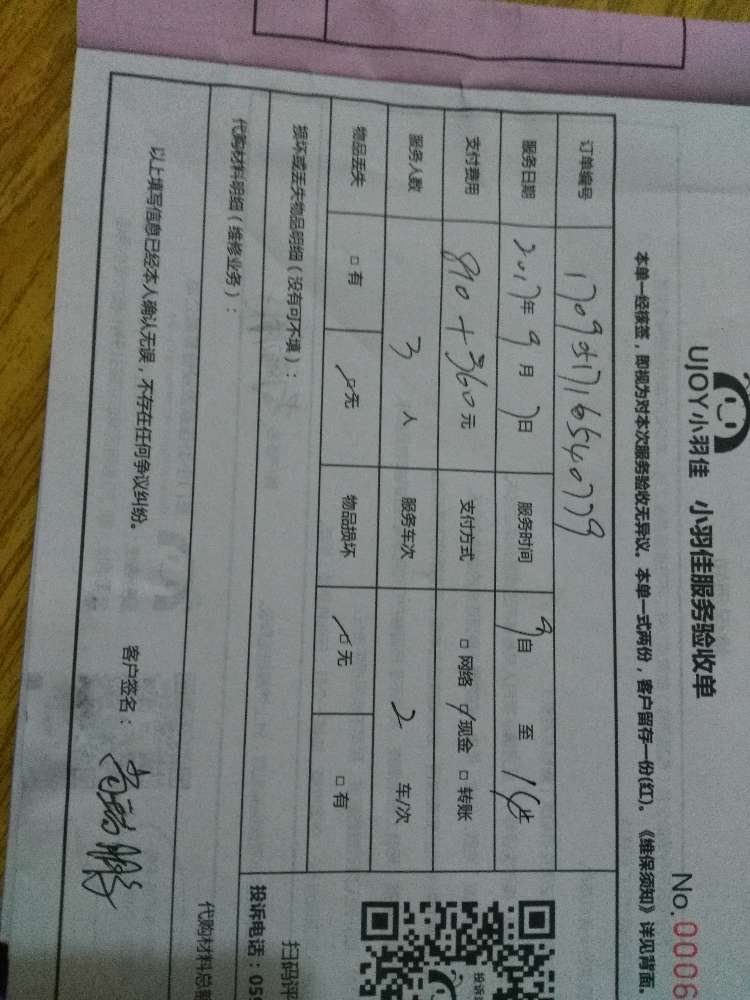 UJOY小羽佳 小羽佳服务验收单
No.0006
本单一经核签，即视为对本次服务验收无异议。本单一式两份，客户留存一份(红)。《维保须知》详见背面。
订单编号 1709051716540779
服务日期 2017年9月7日 服务时间 9自 至
支付费用 890+360元 支付方式 □网络 ☑现金 □转账
服务人数 3人 服务车次 2 车/次
物品丢失 □有 ☑无 物品损坏 ☑无 □有
损坏或丢失物品明细（没有可不填）：
扫码评
代购材料明细（维修业务）：
投诉电话：059
代购材料总
以上填写信息已经本人确认无误，不存在任何争议纠纷。 客户签名：